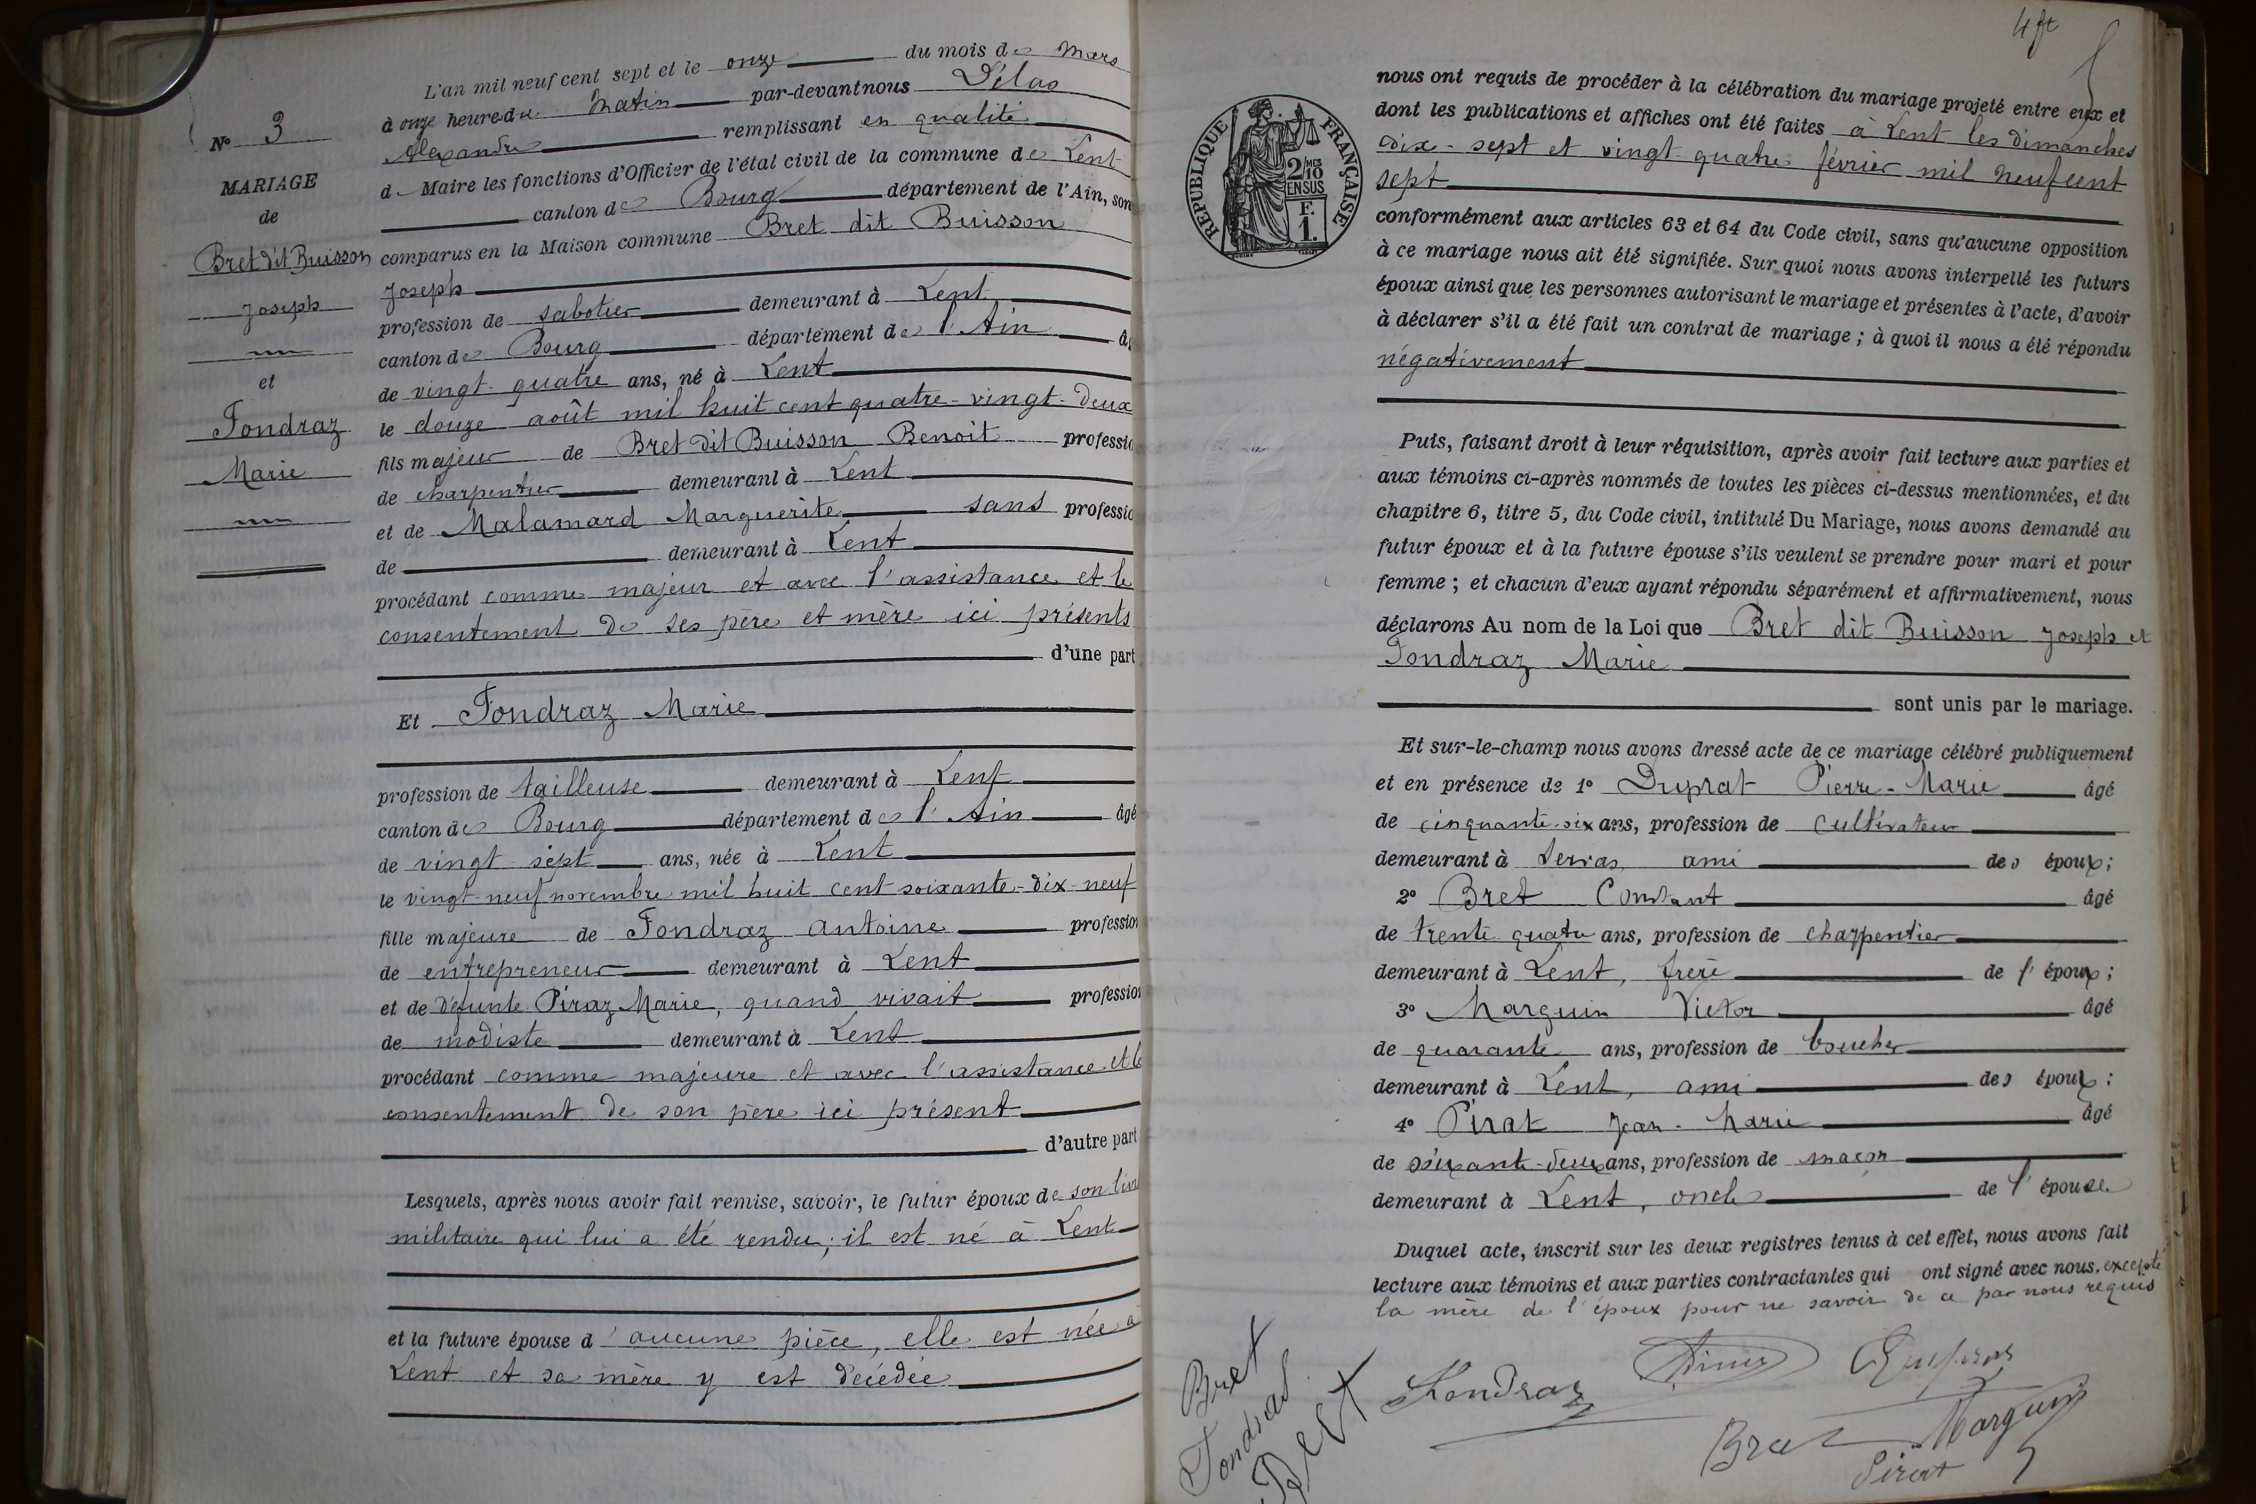 L'an mil neuf cent sept et le onze du mois de Mars
à onze heure du Matin par-devant nous Délas
Alexandre remplissant en qualité
d Maire les fonctions d'Officier de l'état civil de la commune de Lent
canton de Bourg département de l'Ain, son
comparus en la Maison commune Bret dit Buisson
Joseph
profession de sabotier demeurant à Lent
canton de Bourg département de l'Ain
de vingt-quatre ans, né à Lent
le douze août mil huit cent quatre-vingt-deux
fils majeur de Bret dit Buisson Benoit professio
de charpentier demeurant à Lent
et de Malamard Marguerite sans professio
de demeurant à Lent
procédant comme majeur et avec l'assistance et le
consentement de ses père et mère ici présents
d'une part
Et Fondraz Marie
profession de tailleuse demeurant à Lent
canton de Bourg département de l'Ain âgé
de vingt-sept ans, née à Lent
le vingt-neuf novembre mil huit cent soixante-dix-neuf
fille majeure de Fondraz Antoine profession
de entrepreneur demeurant à Lent
et de défunte Piraz Marie, quand vivait profession
de modiste demeurant à Lent
procédant comme majeure et avec l'assistance et le
consentement de son père ici présent
d'autre part
Lesquels, après nous avoir fait remise, savoir, le futur époux de son livr
militaire qui lui a été rendu; il est né à Lent
et la future épouse d'aucune pièce, elle est née à
Lent et sa mère y est décédée
N° 3
MARIAGE
de
Bret dit Buisson
Joseph
et
Fondraz
Marie
4 ft
RÉPUBLIQUE FRANÇAISE
2/10 MES
EN SUS
F.
1.
nous ont requis de procéder à la célébration du mariage projeté entre eux et
dont les publications et affiches ont été faites à Lent les dimanches
dix-sept et vingt-quatre février mil neuf cent
sept
conformément aux articles 63 et 64 du Code civil, sans qu'aucune opposition
à ce mariage nous ait été signifiée. Sur quoi nous avons interpellé les futurs
époux ainsi que les personnes autorisant le mariage et présentes à l'acte, d'avoir
à déclarer s'il a été fait un contrat de mariage ; à quoi il nous a été répondu
négativement
Puis, faisant droit à leur réquisition, après avoir fait lecture aux parties et
aux témoins ci-après nommés de toutes les pièces ci-dessus mentionnées, et du
chapitre 6, titre 5, du Code civil, intitulé Du Mariage, nous avons demandé au
futur époux et à la future épouse s'ils veulent se prendre pour mari et pour
femme ; et chacun d'eux ayant répondu séparément et affirmativement, nous
déclarons Au nom de la Loi que Bret dit Buisson Joseph et
Fondraz Marie
sont unis par le mariage.
Et sur-le-champ nous avons dressé acte de ce mariage célébré publiquement
et en présence de 1° Duprat Pierre-Marie âgé
de cinquante-six ans, profession de cultivateur
demeurant à Servas, ami des époux;
2° Bret Constant âgé
de trente-quatre ans, profession de charpentier
demeurant à Lent, frère de l'époux;
3° Marguin Victor âgé
de quarante ans, profession de boucher
demeurant à Lent, ami des époux;
4° Pirat Jean-Marie âgé
de soixante-deux ans, profession de maçon
demeurant à Lent, oncle de l'épouse
Duquel acte, inscrit sur les deux registres tenus à cet effet, nous avons fait
lecture aux témoins et aux parties contractantes qui ont signé avec nous. excepté
la mère de l'époux pour ne savoir de ce par nous requis
Bret
Fondraz
Bret
Fondraz
Duprat
Bret
Marguin
Pirat